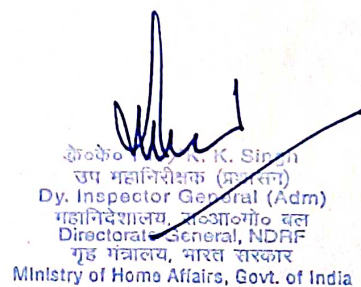 के०के० K. K. Singh
उप महानिरीक्षक (प्रशासन)
Dy. Inspector General (Adm)
महानिदेशालय, रा०आ०मो० बल
Directorate General, NDRF
गृह मंत्रालय, भारत सरकार
Ministry of Home Affairs, Govt. of India